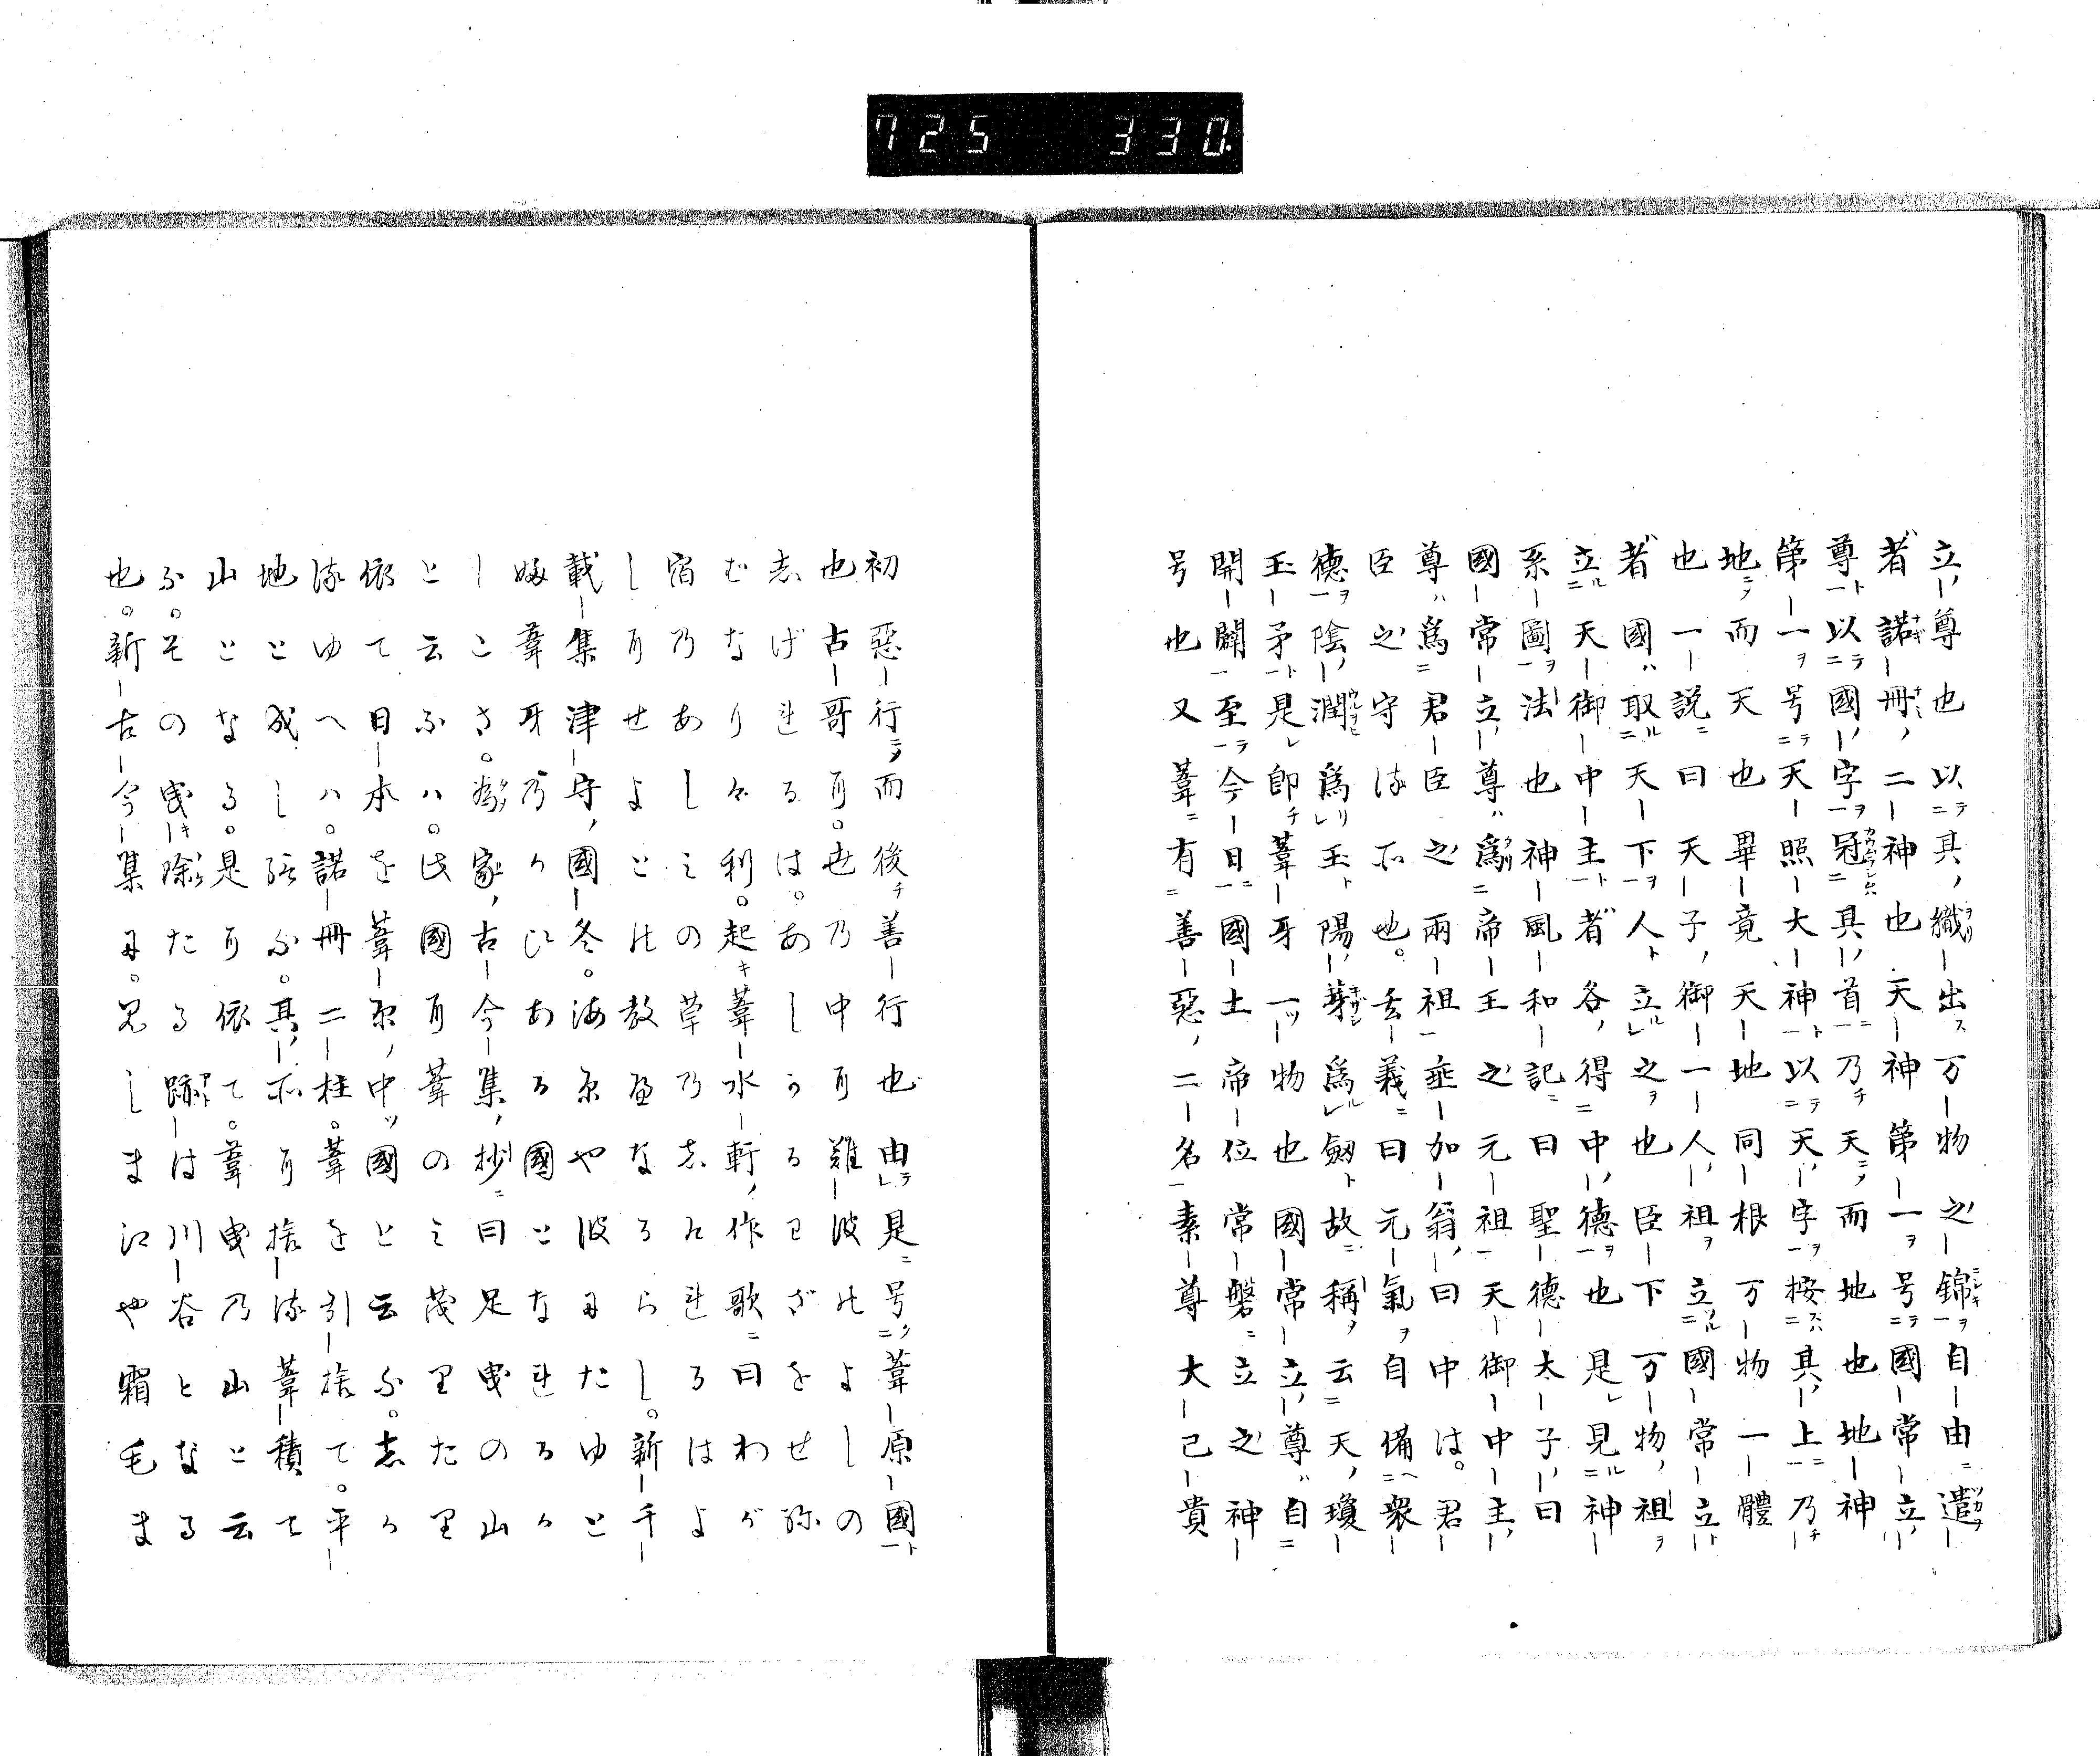 725 330.
立尊也以其織出万物之錦自由遣
者諾冊二神也天神第一号國常立
尊以國字冠其首乃天而地也地神
第一号天照大神以天字按其上乃
地而天也畢竟天地同根万物一體
也一説曰天子御一人祖立國常立
者國取天下人立之也臣下万物祖
立天御中主者各得中德也是見神
系圖法也神風和記曰聖德太子曰
國常立尊為帝王之元祖天御中主
尊為君臣之兩祖垂加翁曰中は君
臣之守는所也去義曰元氣自備衆
德陰潤為玉陽䔥為劔故稱云天瓊
玉矛是即葦牙一物也國常立尊自
開闢至今日國土帝位常磐立之神
号也又葦有善惡二名素尊大己貴
初惡行而後善行也由是号葦原國
也古哥耳世乃中耳難波のよしの
志げれるはあしうるわざをせぬ
むなりけ利起葦水軒作歌曰わが
宿乃あしみの草乃志たれるはよ
し耳せよとの教なるらし新千
載集津守國冬海原や波にたゆと
婦葦牙乃かひある国となれるか
しこさ鄰家古今集抄曰足曳の山
と云ふハ此國耳葦のミ茂里た里
依て日本を葦原中國と云ふ志か
流ゆへハ諾冊二柱葦を引捨て平
地と成し給ふ其所耳捨流葦積て
山となる是耳依て葦曳乃山と云
ふその曳除たる跡は川谷となる
也新古今集に冕しま江や霜毛ま